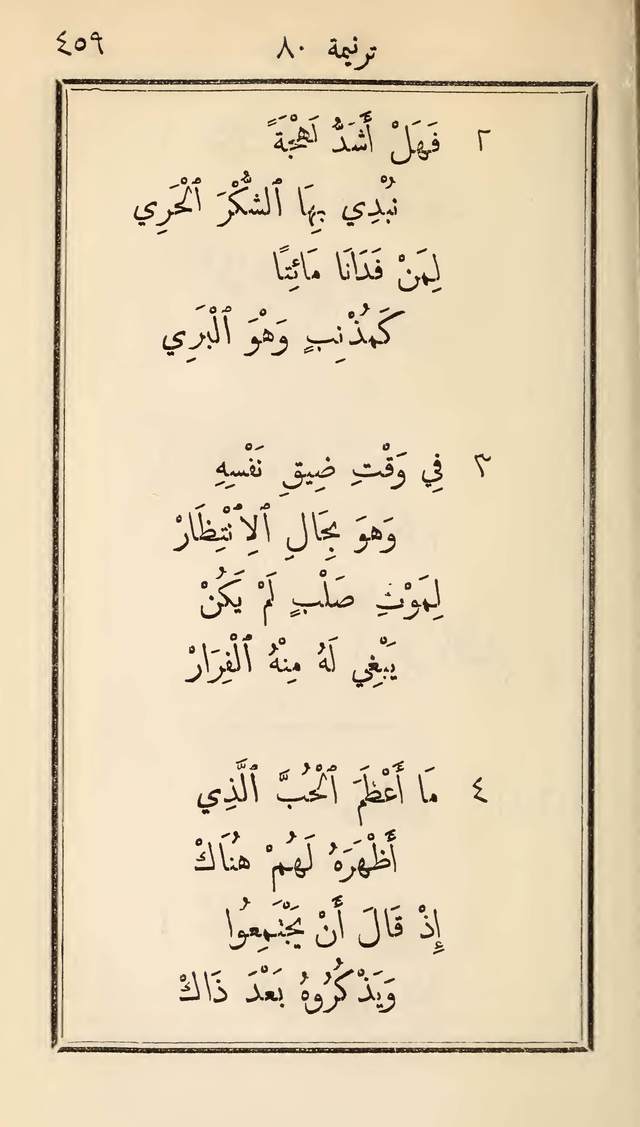 ترنيمة ٨٠ ٤٥٩
٢ فَهَلْ أَشَدُّ لَهْجَةً
نُبْدِي بِهَا ٱلشُّكْرَ ٱلْحَرِي
لِمَنْ فَدَانَا مَائِتًا
كَمُذْنِبٍ وَهْوَ ٱلْبَرِي
٣ فِي وَقْتِ ضِيقِ نَفْسِهِ
وَهوَ بِحَالِ ٱلِٱنْتِظَارْ
لِمَوْتِ صَلْبٍ لَمْ يَكُنْ
يَبْغِي لَهُ مِنْهُ ٱلْفِرَارْ
٤ مَا أَعْظَمَ ٱلْحُبَّ ٱلَّذِي
أَظْهَرَهُ لَهُمْ هُنَاكْ
إِذْ قَالَ أَنْ يَجْتَمِعُوا
وَيَذْكُرُوهُ بَعْدَ ذَاكْ